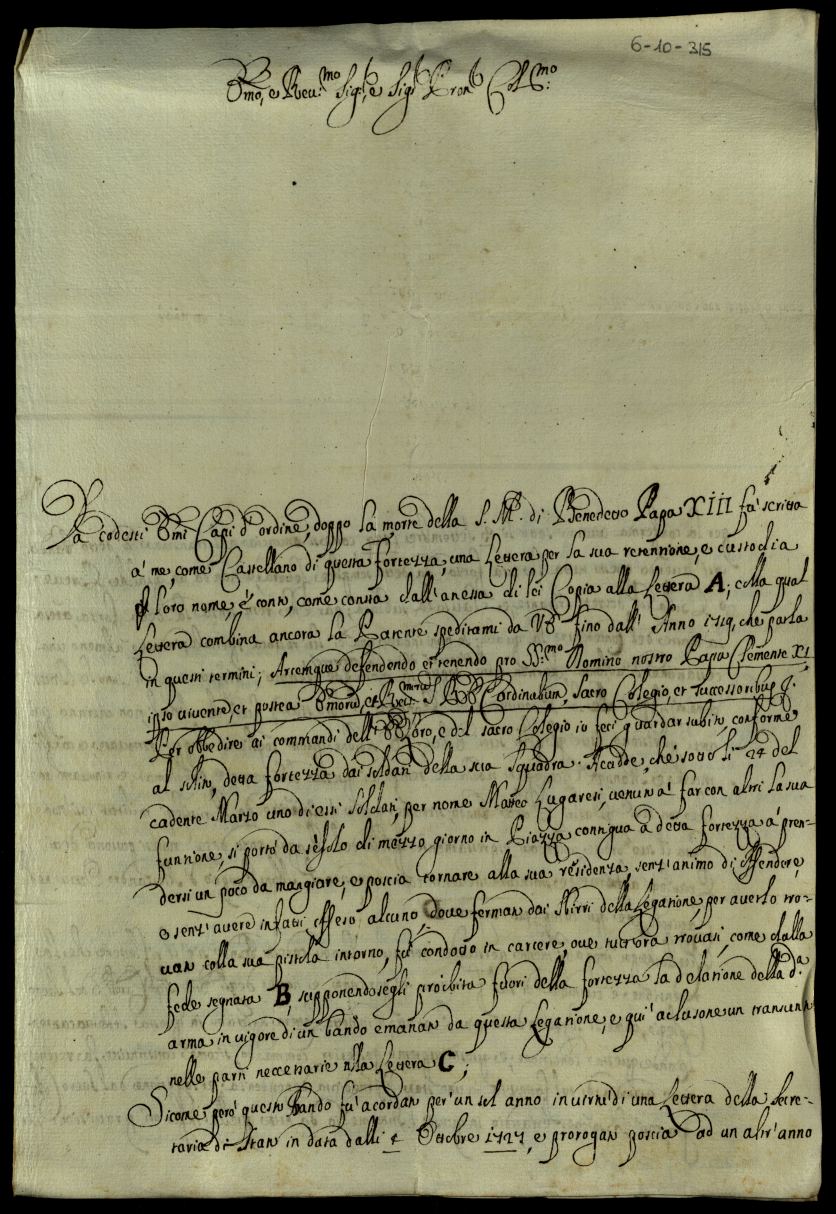 6-10-315
Emo, e Reu.mo Sig.r, e Sig.r Pron Col.mo:
Da codesti Emi Capi d'ordine, doppo la morte della S. M. di Benedetto Papa XIII fu' scritta
a' me, come Castellano di questa Fortezza, una Lettera per la sua retentione, e custodia
loro nome, e conto, come consta dall'anessa di lei Copia alla Lettera A; colla qual
Lettera combina ancora la Patente speditami da fino dall' Anno 1719, che parla
in questi termini; Arcemque defendendo et tenendo pro SS.mo Domino nostro Papa Clemente XI
ipso vivente, et postea Emorū, et Reu.morū S. R. E. Cardinalium, Sacro Colegio, et successoribus
Per obbedire ai commandi dell' EE Loro, e del sacro Colegio io feci guardar subito, conforme
al solito, detta fortezza dai soldati della sua squadra. Acadde, che sotto li 24 del
cadente Marzo uno di essi Soldati, per nome Matteo Lugaresi, venuto a' far con altri la sua
funtione, si portò da sè solo di mezzo giorno in Piazza contigua a detta fortezza a' pren-
dersi un poco da mangiare, e poscia tornare alla sua residenza, senz'animo di offendere,
o senz' avere infatti offeso alcuno, dove fermato dai sbirri della Legatione, per averlo tro-
uato colla sua pistola intorno, fu' condotto in carcere, ove tutt'ora trovasi, come dalla
fede segnata B, supponendosegli proibita fuori della fortezza la delatione della d.a
arma in uigore di un bando emanato da questa Legatione, e qui' aclusone un transunto
nelle parti neccessarie nlla Lettera C;
Sicome pero' questo Bando fu' acordato per un sol anno in uirtu' di una Lettera della Secre-
taria di Stato in data dalli Ottobre 1727, e prorogato poscia ad un altr' anno